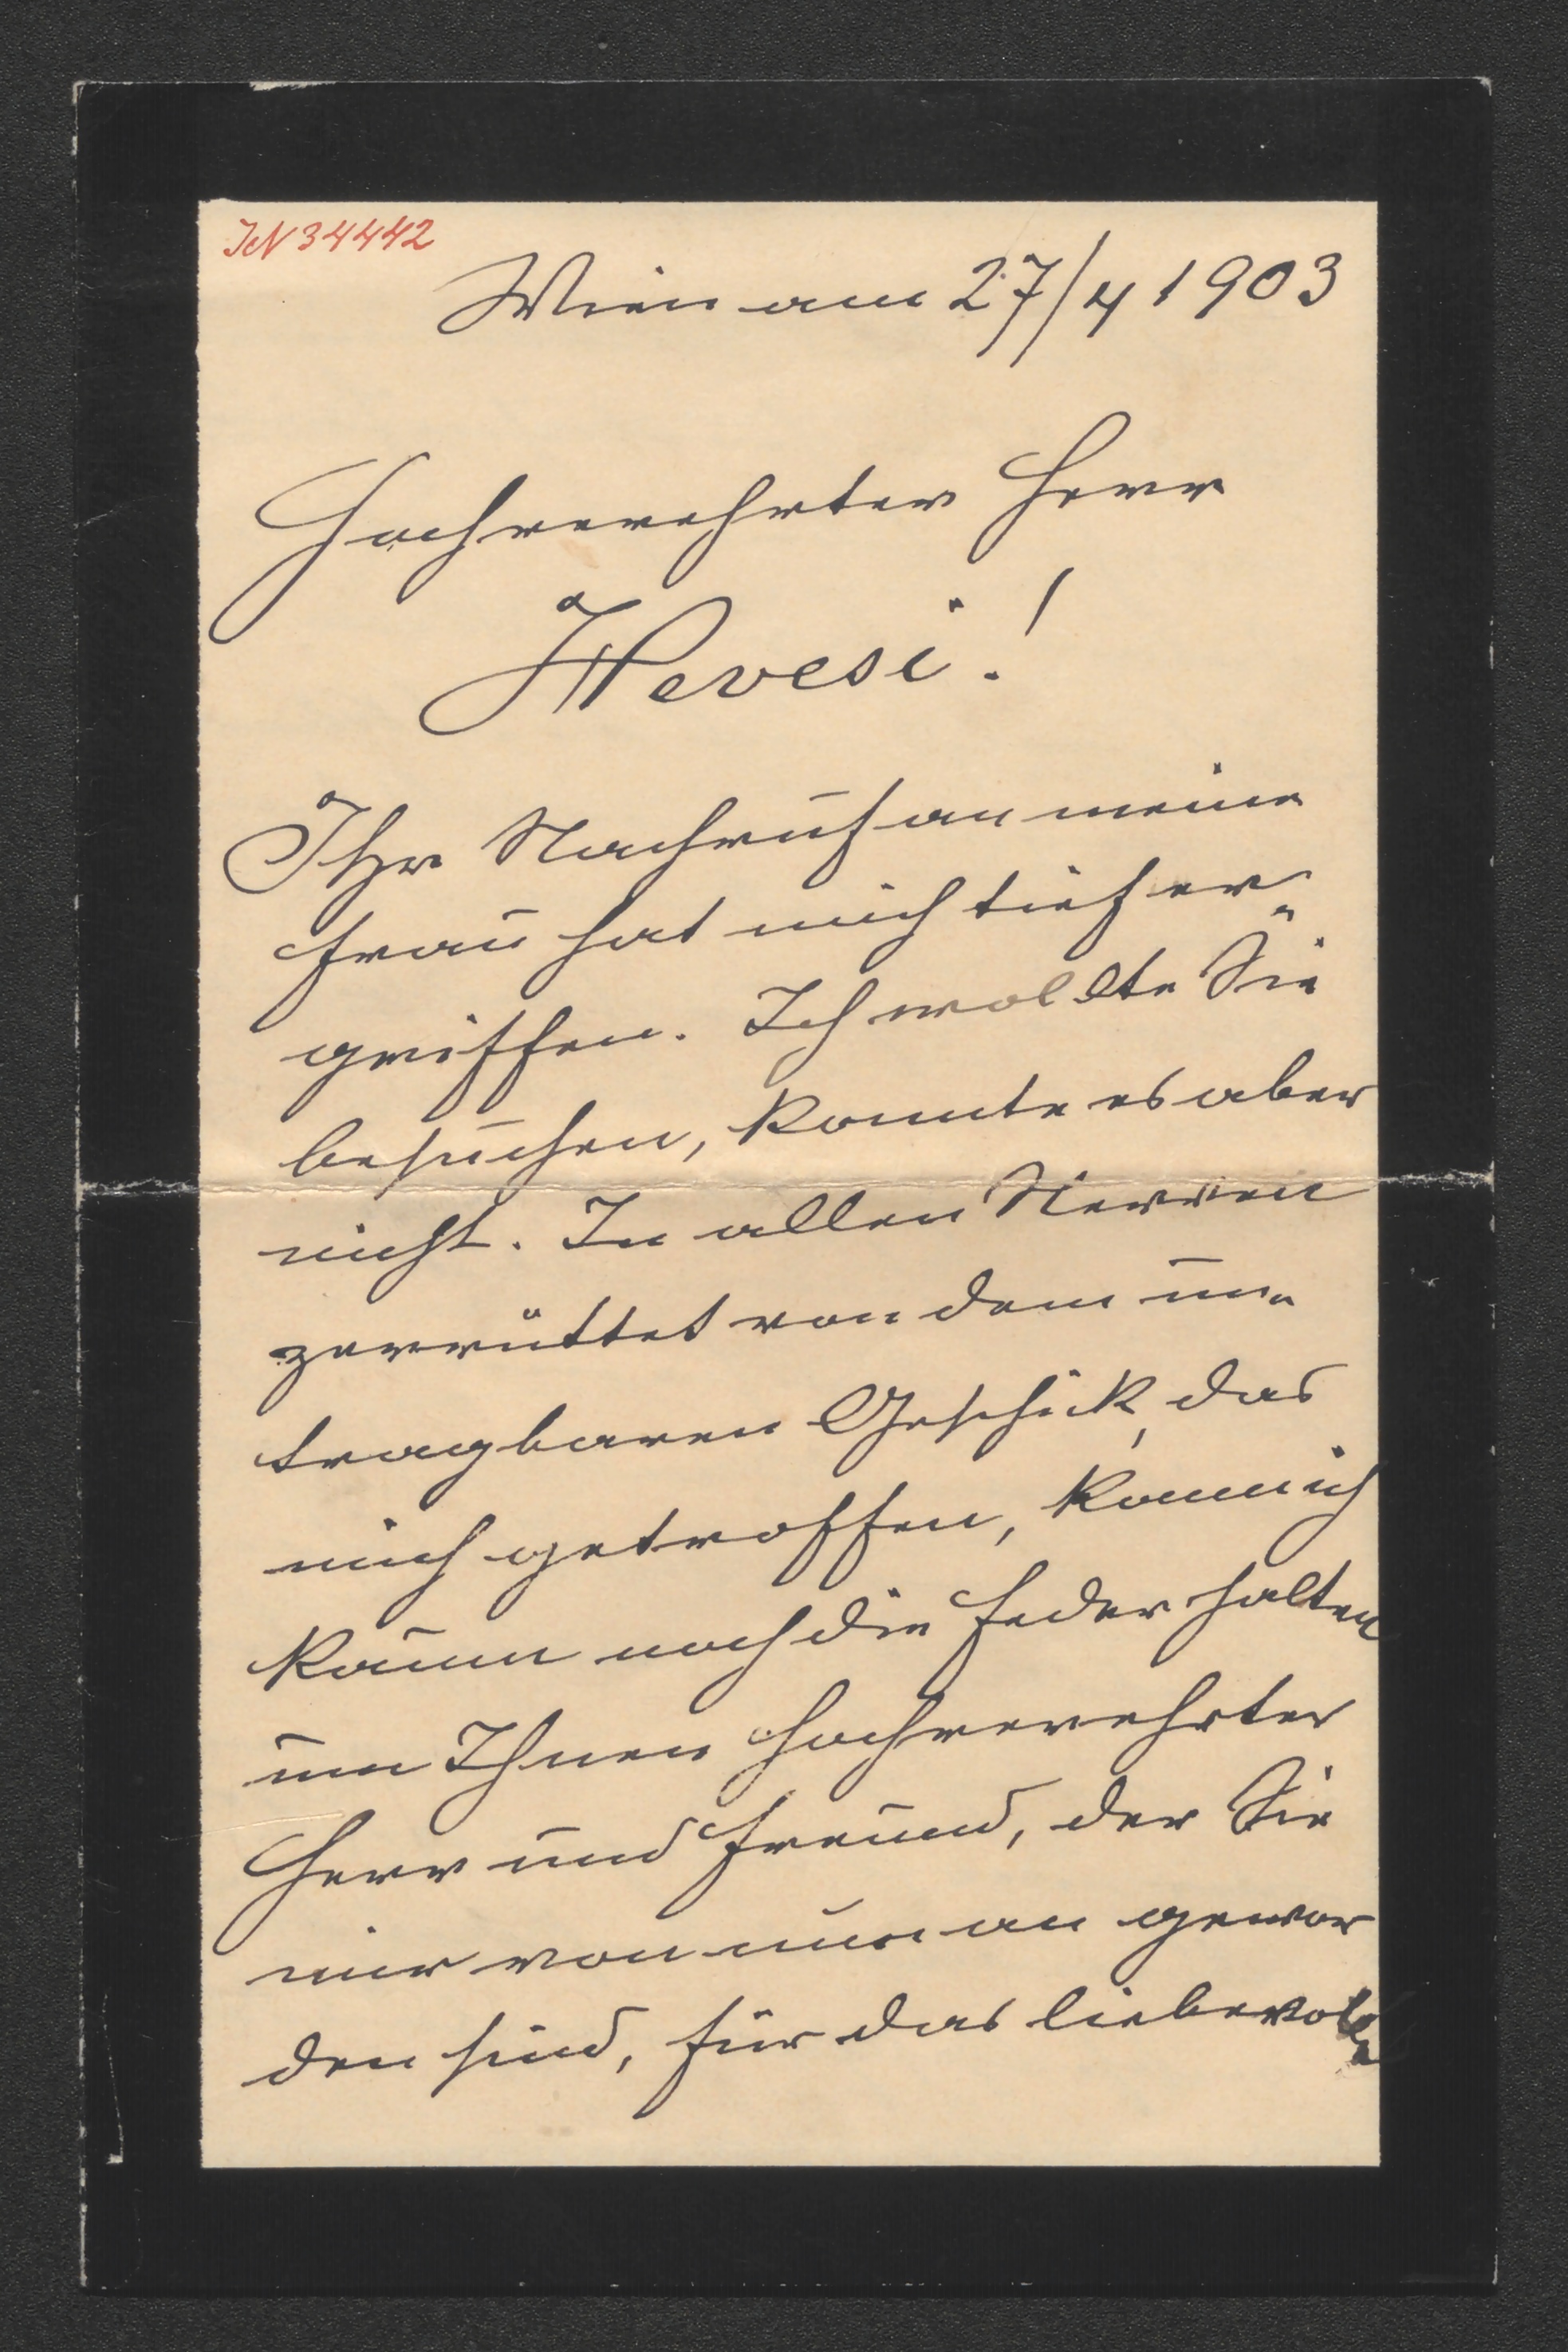 IN 34442
Wien am 27/4 1903
Hochverehrter Herr
Hevesi!
Ihr Nachruf an meine
Frau hat mich tief er-
griffen. Ich wollte Sie
besuchen, konnte es aber
nicht. In allen Nerven
zerrüttet von dem un-
tragbaren Geschick, das
mich getroffen, kann ich
kaum noch die Feder halten
um Ihnen hochverehrter
Herr und Freund, der Sie
mir von nun an gewor
den sind, für das liebevolle